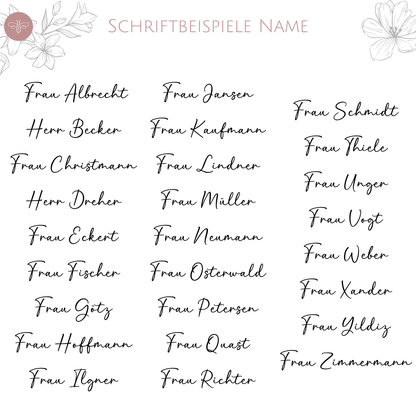 SCHRIFTBEISPIELE NAME
Frau Albrecht
Herr Becker
Frau Christmann
Herr Dreher
Frau Eckert
Frau Fischer
Frau Götz
Frau Hoffmann
Frau Ilgner
Frau Jansen
Frau Kaufmann
Frau Lindner
Frau Müller
Frau Neumann
Frau Osterwald
Frau Petersen
Frau Quast
Frau Richter
Frau Schmidt
Frau Thiele
Frau Unger
Frau Vogt
Frau Weber
Frau Xander
Frau Yildiz
Frau Zimmermann